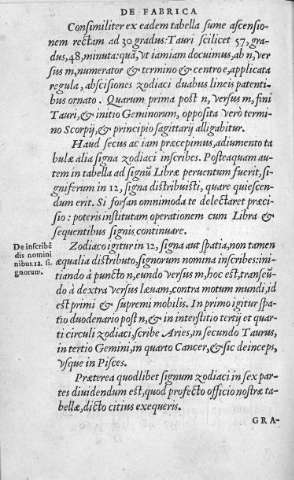 DE FABRICA
Consimiliter ex eadem tabella sume ascensio-
nem rectam ad 30 gradus: Tauri scilicet 57, gra-
dus, 48, minuta: quâ, ut iam iam docuimus, ab n, ver
sus m, numerator & termino & centro e, applicata
regula, abscisiones zodiaci duabus lineis patenti-
bus ornato. Quarum prima post n, versus m, fini
Tauri, & initio Geminorum, opposita vero termi-
no Scorpij, & principio sagittarij alligabitur.
Haud secus ac iam præcepimus, adiumento ta
bulæ alia signa zodiaci inscribes. Posteaquam au-
tem in tabella ad signũ Libræ peruentum fuerit, si-
gniferum in 12, signa distribuisti, quare quiescen-
dum erit. Si forsan omnimoda te delectaret præci-
sio: poteris institutam operationem cum Libra &
sequentibus signis continuare.
De inscribẽ
dis nomini
nibus 12. si
gnorum.
Zodiaco igitur in 12, signa aut spatia, non tamen
æqualia distributo, signorum nomina inscribes: ini-
tiando à puncto n, eundo versus m, hoc est, transeũ-
do à dextra versus læuam, contra motum mundi, id
est primi & supremi mobilis. In primo igitur spa-
tio duodenario post n, & in interstitio tertij et quar-
ti circuli zodiaci, scribe Aries, in secundo Taurus,
in tertio Gemini, in quarto Cancer, & sic deinceps,
vsque in Pisces.
Præterea quodlibet signum zodiaci in sex par-
tes diuidendum est, quod profecto officio nostræ ta-
bellæ, dicto citius exequeris.
GRA-